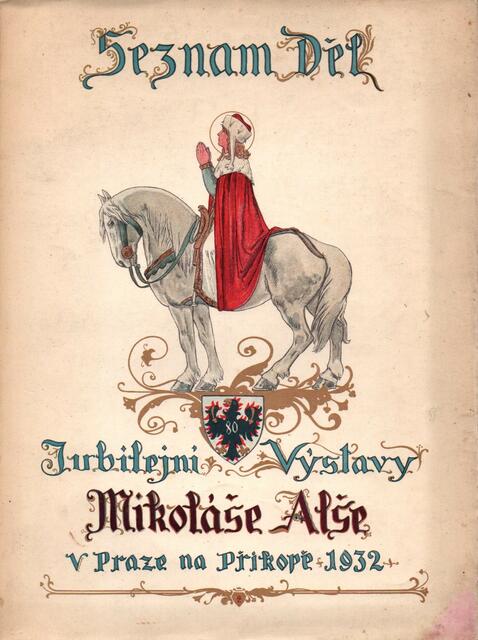 Seznam Děl
80
Jubilejní Výstavy
Mikoláše Alše
v Praze na Příkopě 1932